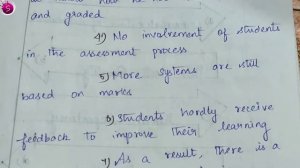 and graded
4) No involvement of students
in the assessment process
5) More systems are still
based on marks
6) Students hardly receive
feedback to improve their learning
7) As a result, there is a